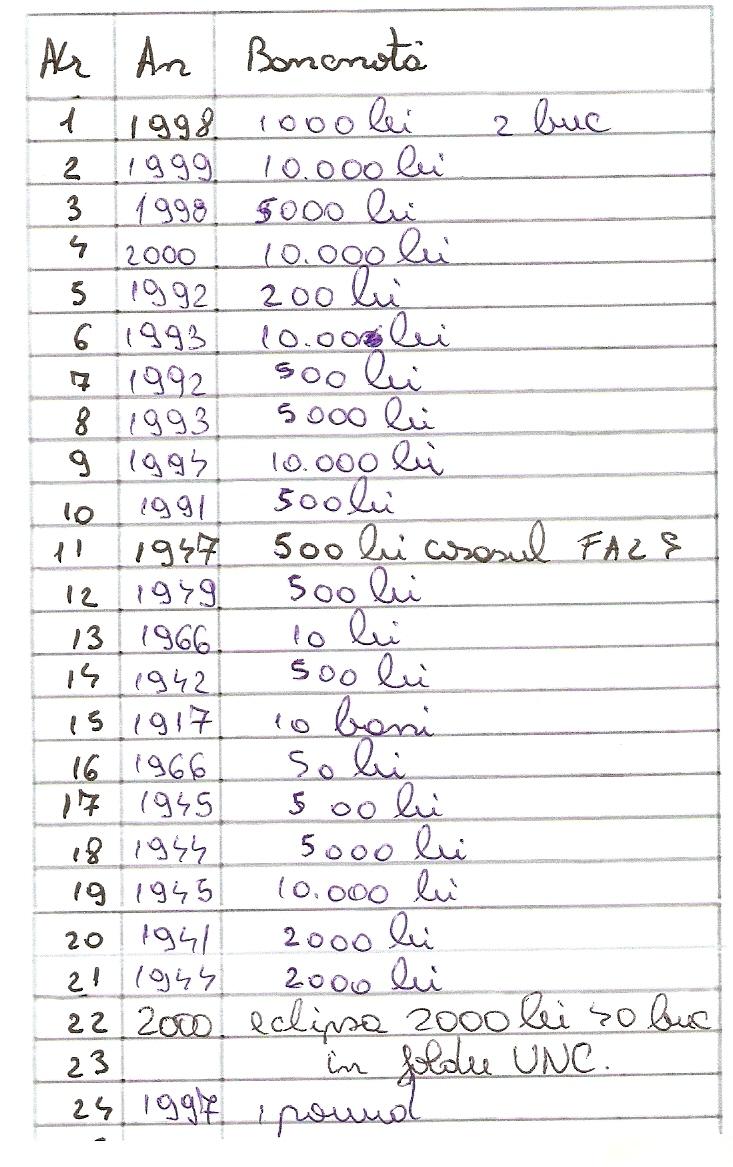 Nr An Bancnotă
1 1998 1000 lei 2 buc
2 1999 10.000 lei
3 1998 5000 lei
4 2000 10.000 lei
5 1992 200 lei
6 1993 10.000 lei
7 1992 500 lei
8 1993 5000 lei
9 1994 10.000 lei
10 1991 500 lei
11 1947 500 lei FALS
12 1949 500 lei
13 1966 10 lei
14 1942 500 lei
15 1917 10 bani
16 1966 50 lei
17 1945 500 lei
18 1944 5000 lei
19 1945 10.000 lei
20 1941 2000 lei
21 1944 2000 lei
22 2000 eclipsa 2000 lei 40 buc
23 in folder UNC.
24 1997 1 pound